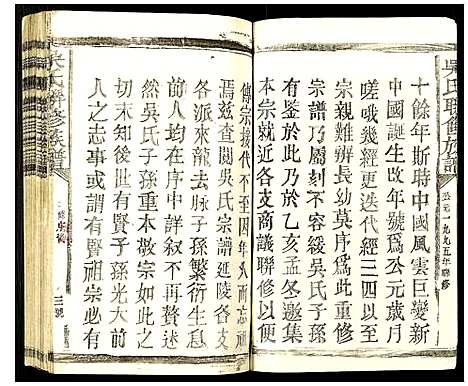 吳氏聯修族譜
公元一九九五年聯修
十餘年斯時中國風雲巨變新
中國誕生改年號為公元歲月
嗟哦幾經更迭代經三四以至
宗親難辨長幼莫序為此重修
宗譜乃屬刻不容緩吳氏子孫
有鑒於此乃於乙亥孟冬邀集
本宗就近各支商議聯修
傳宗接代不至因年久而忘祖
焉茲查閱吳氏宗譜延陵各支
各派來龍去脉子孫繁衍生息
前人均在序中詳叙不再贅述
然吳氏子孫重本敬宗之情殷
切末知後世有賢子孫光大前
人之志者或謂有賢祖宗必有
吳氏聯修族譜
三號